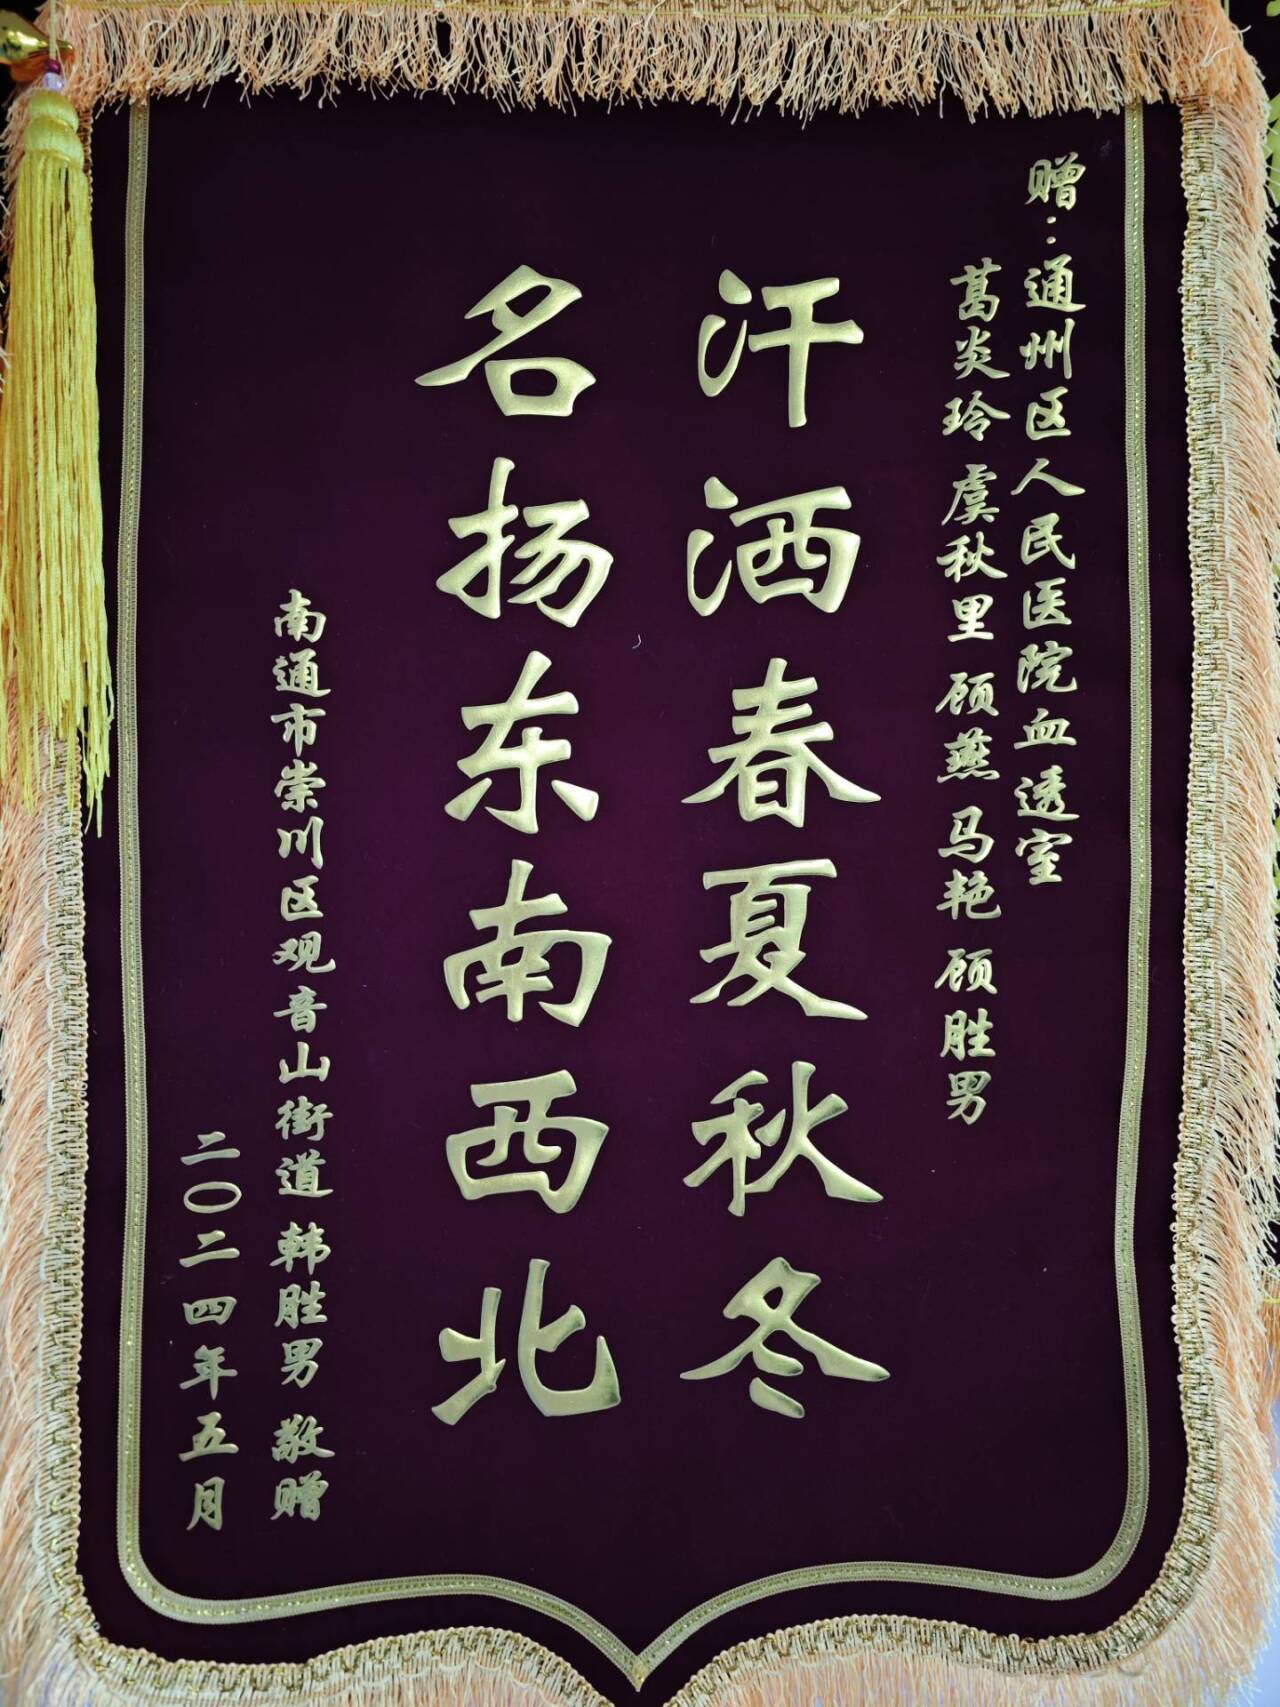 赠：通州区人民医院血透室
葛炎玲 虞秋里 顾燕 马艳 顾胜男
汗洒春夏秋冬
名扬东南西北
南通市崇川区观音山街道 韩胜男 敬赠
二〇二四年五月